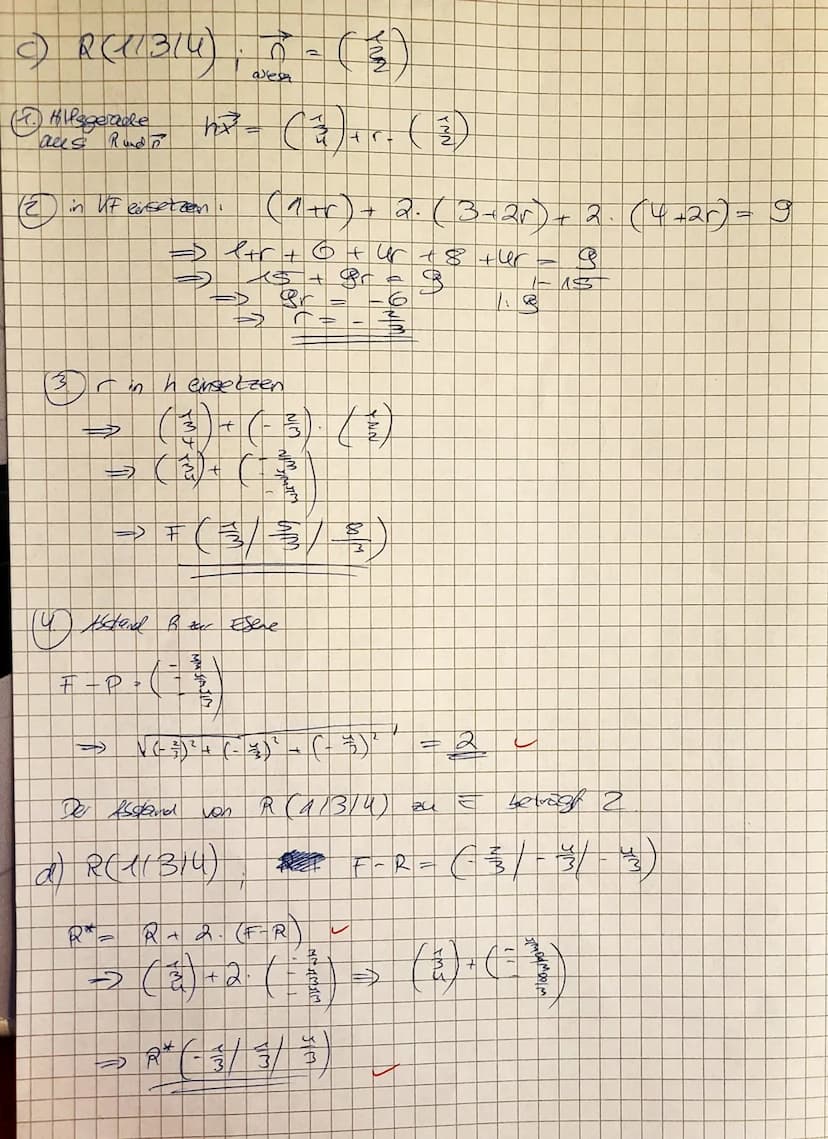 c) R(1/3/4) ; n⃗ = (1 2 2)
① Hilfsgerade h: x⃗ = (1 3 4) + r · (1 2 2)
aus R und n⃗
② in KF einsetzen: (1+r) + 2·(3+2r) + 2·(4+2r) = 9
⇒ 1+r + 6 + 4r + 8 + 4r = 9
⇒ 15 + 9r = 9 |-15
⇒ 9r = -6 |:9
⇒ r = -2/3
③ r in h einsetzen
⇒ (1 3 4) + (-2/3) · (1 2 2)
⇒ (1 3 4) + (-2/3 -4/3 -4/3)
⇒ F (1/3 / 5/3 / 8/3)
④ Abstand R zur Ebene
F - P = (-2/3 -4/3 -4/3)
⇒ √((-2/3)² + (-4/3)² + (-4/3)²) = 2 ✓
Der Abstand von R(1/3/4) zu E beträgt 2
d) R(1/3/4) ; F-R = (-2/3 / -4/3 / -4/3)
R* = R + 2·(F-R) ✓
⇒ (1 3 4) + 2·(-2/3 -4/3 -4/3) ⇒ (1 3 4) + (-4/3 -8/3 -8/3)
⇒ R* (-1/3 / 1/3 / 4/3) ✓